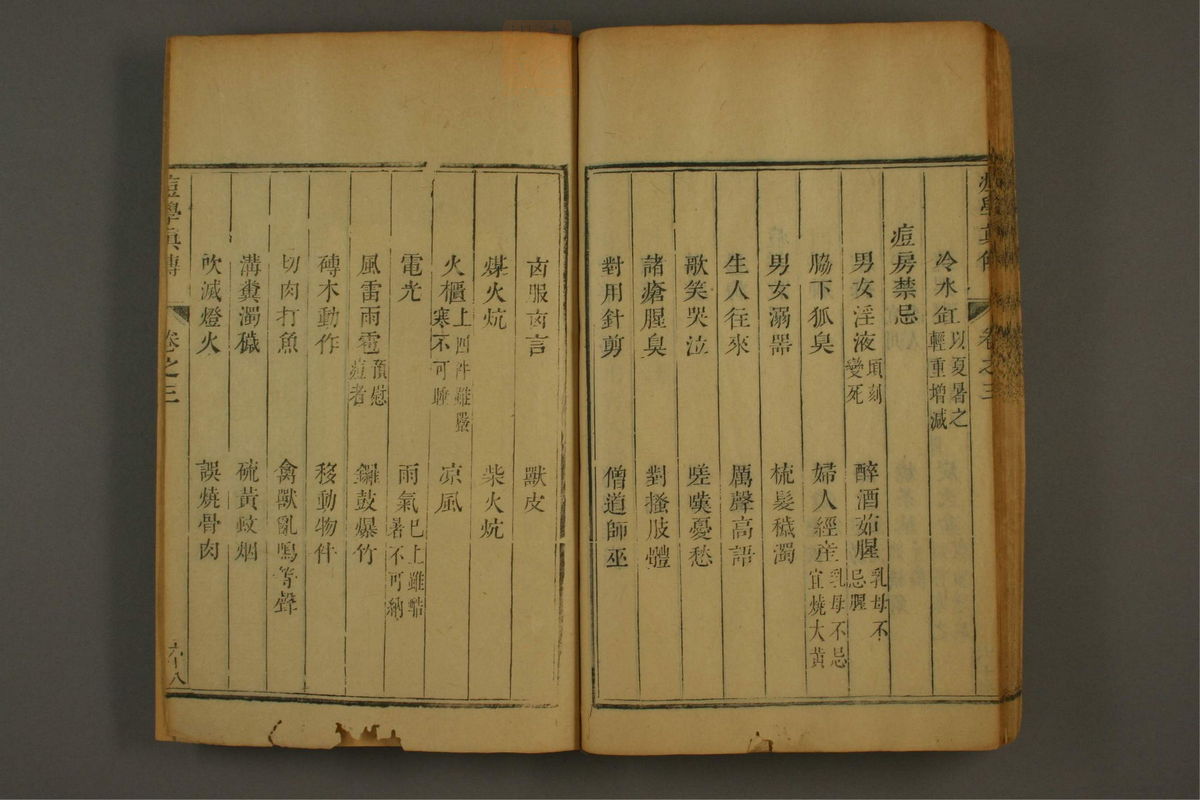 冷水缸以夏暑之輕重增減
痘房禁忌
男女淫液頃刻變死 醉酒茹腥乳母不忌腥
脇下狐臭 婦人經產乳母不忌宜燒大黃
男女溺器 梳髮穢濁
生人往來 厲聲高語
歌笑哭泣 嗟嘆憂愁
諸瘡腥臭 對搔肢體
對用針剪 僧道師巫
卤服卤言 獸皮
煤火炕 柴火炕
火櫃上四件雖嚴寒不可睡 凉風
電光 雨氣已上雖酷暑不可納
風雷雨雹預慰痘者 鑼鼓爆竹
磚木動作 移動物件
切肉打魚 禽獸亂鳴等聲
溝糞濁穢 硫黃蚊烟
吹滅燈火 誤燒骨肉
痘學真傳 卷之三 六十八